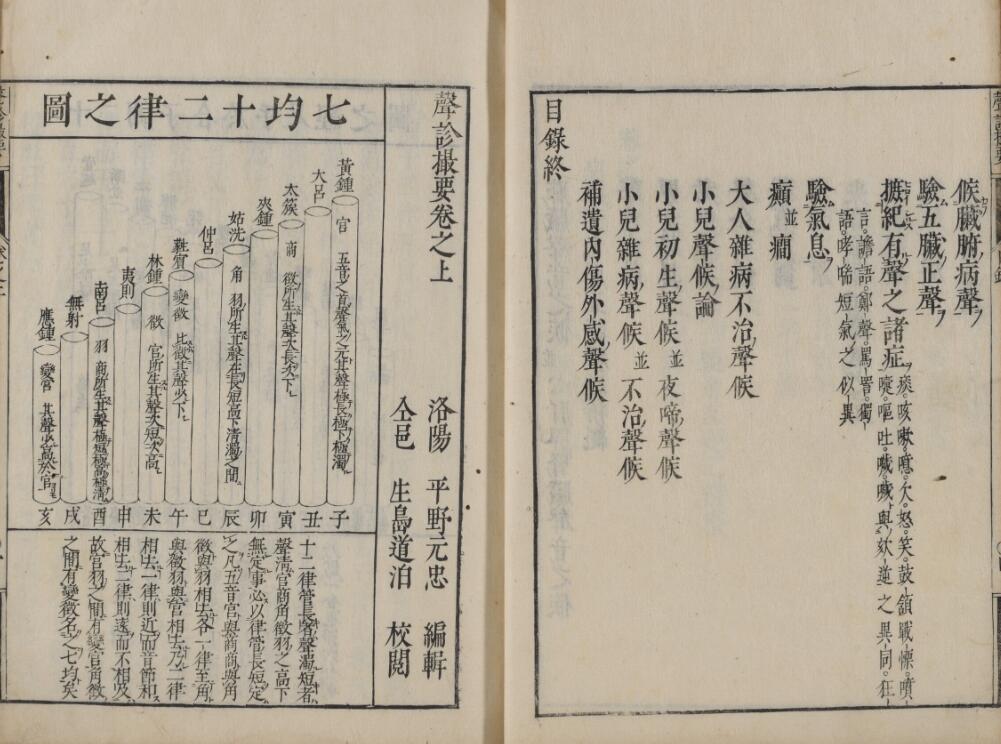 候臟腑病聲
驗五臟正聲
摭紀有聲之諸症 痰咳嗽噫欠怒笑鼓頷戰慄噴
嚏嘔吐噦噦與欬逆之異同狂
言譫語鄭聲罵詈獨
語哮喘短氣之似異
驗氣息
癲並癇
大人雜病不治聲候
小兒聲候論
小兒初生聲候並夜啼聲候
小兒雜病聲候並不治聲候
補遺內傷外感聲候
目錄終
聲診撮要卷之上
洛陽 平野元忠 編輯
仝邑 生島道泊 校閱
七均十二律之圖
黃鍾 宮 五音之首聲氣之元其聲極長極下極濁 子
大呂 丑
太簇 商 徵所生其聲次長次下 寅
夾鍾 卯
姑洗 角 羽所生其聲在長短高下清濁之間 辰
仲呂 巳
蕤賓 變徵 比徵其聲必下 午
林鍾 徵 宮所生其聲次短次高 未
夷則 申
南呂 羽 商所生其聲極短極高極清 酉
無射 戌
應鍾 變宮 其聲必高於宮 亥
十二律管長者聲濁短者
聲清宮商角徵羽之高下
無定事必以律管長短定
之凡五音宮與商商與角
徵與羽相去各一律至角
與徵羽與宮相去乃二律
相去一律則近而音節和
相去二律則遠而不相及
故宮羽之間有變宮角徵
之間有變徵名之七均矣